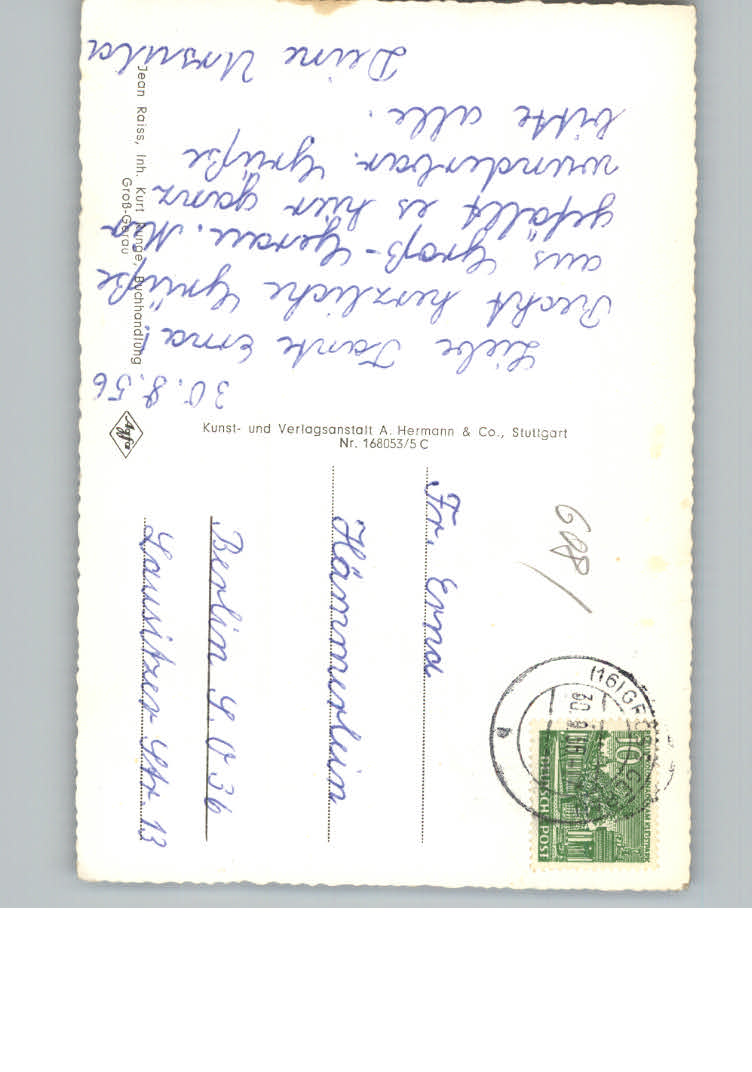 30.8.56
Liebe Tante Erna!
Recht herzliche Grüße
aus Groß-Gerau. Mir
gefällt es hier ganz
wunderbar. Grüße
bitte alle.
Deine Ursula
Jean Raiss, Inh. Kurt Runge, Buchhandlung
Groß-Gerau
Agfa
Kunst- und Verlagsanstalt A. Hermann & Co., Stuttgart
Nr. 168053/5 C
Fr. Erna
Hämmerlein
Berlin S.O 36
Lausitzer Str. 13
(16) GROSS
30.8.56
a
10
DEUTSCHE POST